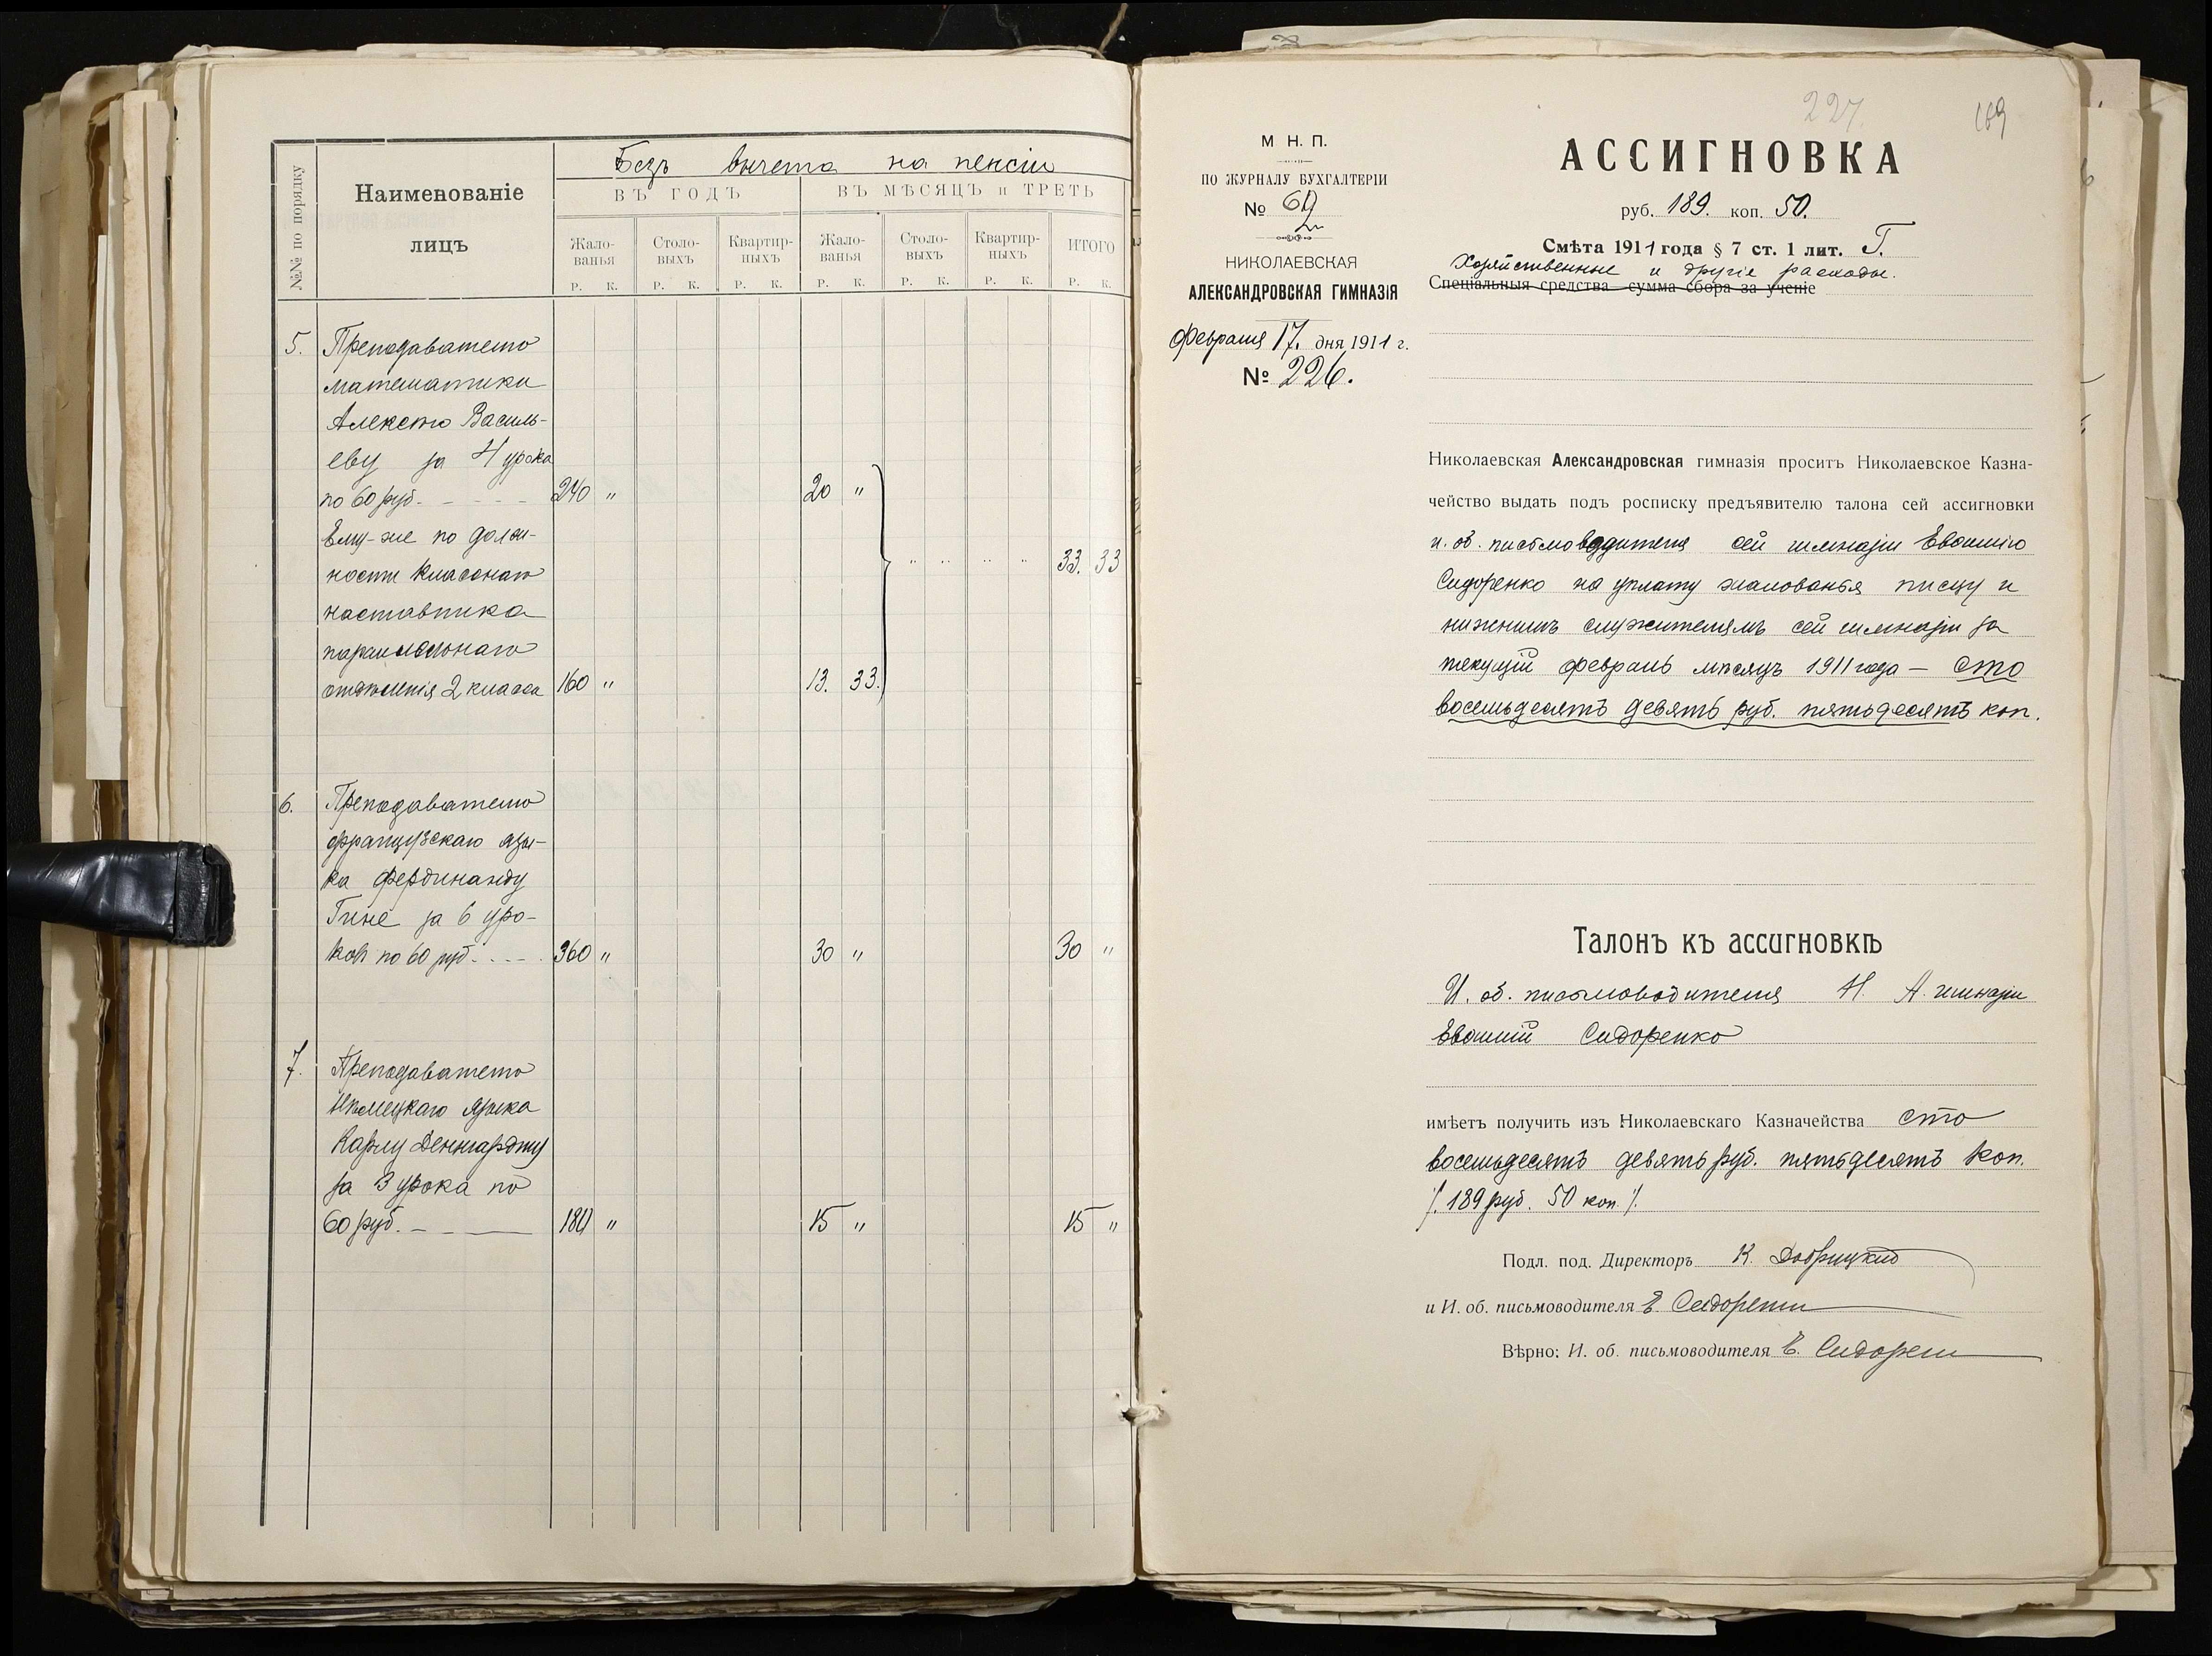 Безъ вычета на пенсіи
№№ по порядку
Наименованіе
лицъ
ВЪ ГОДЪ
ВЪ МѢСЯЦЪ и ТРЕТЬ
Жало-
ванья
Столо-
выхъ
Квартир-
ныхъ
Жало-
ванья
Столо-
выхъ
Квартир-
ныхъ
ИТОГО
Р. К. Р. К. Р. К. Р. К. Р. К. Р. К. Р. К.
5. Преподавателю
математики
Алексѣю Василь-
еву за 4 урока
по 60 руб. - - - - 240 " 20 "
Ему-же по долж-
ности класснаго " " " " 33. 33
наставника
параллельнаго
отдѣленія 2 класса 160 " 13. 33.
6. Преподавателю
французскаго язы-
ка Фердинанду
Гине за 6 уро-
ковъ по 60 руб. - - - - 360 " 30 " 30 "
7. Преподавателю
Нѣмецкаго языка
Карлу Денгардту
за 3 урока по
60 руб. - - - 180 " 15 " 15 "
227.
169
М. Н. П.
ПО ЖУРНАЛУ БУХГАЛТЕРІИ
№ 69
НИКОЛАЕВСКАЯ
АЛЕКСАНДРОВСКАЯ ГИМНАЗІЯ
Февраля 17. дня 1911 г.
№ 226.
АССИГНОВКА
руб. 189. коп. 50.
Смѣта 1911 года § 7 ст. 1 лит. Г.
Хозяйственные и другіе расходы.
Спеціальныя средства сумма сбора за ученіе
Николаевская Александровская гимназія проситъ Николаевское Казна-
чейство выдать подъ росписку предъявителю талона сей ассигновки
и. об. письмоводителя сей гимназіи Евфимію
Сидоренко на уплату жалованья писцу и
нижнимъ служителямъ сей гимназіи за
текущій февраль мѣсяцъ 1911 года — сто
восемьдесятъ девять руб. пятьдесятъ коп.
Талонъ къ ассигновкѣ
И. об. письмоводителя Н. А. гимназіи
Евфимій Сидоренко
имѣетъ получить изъ Николаевскаго Казначейства сто
восемьдесятъ девять руб. пятьдесятъ коп.
/. 189 руб. 50 коп /.
Подл. под. Директоръ К. Добрицкій
и И. об. письмоводителя Е. Сидоренко
Вѣрно: И. об. письмоводителя Е. Сидоренко